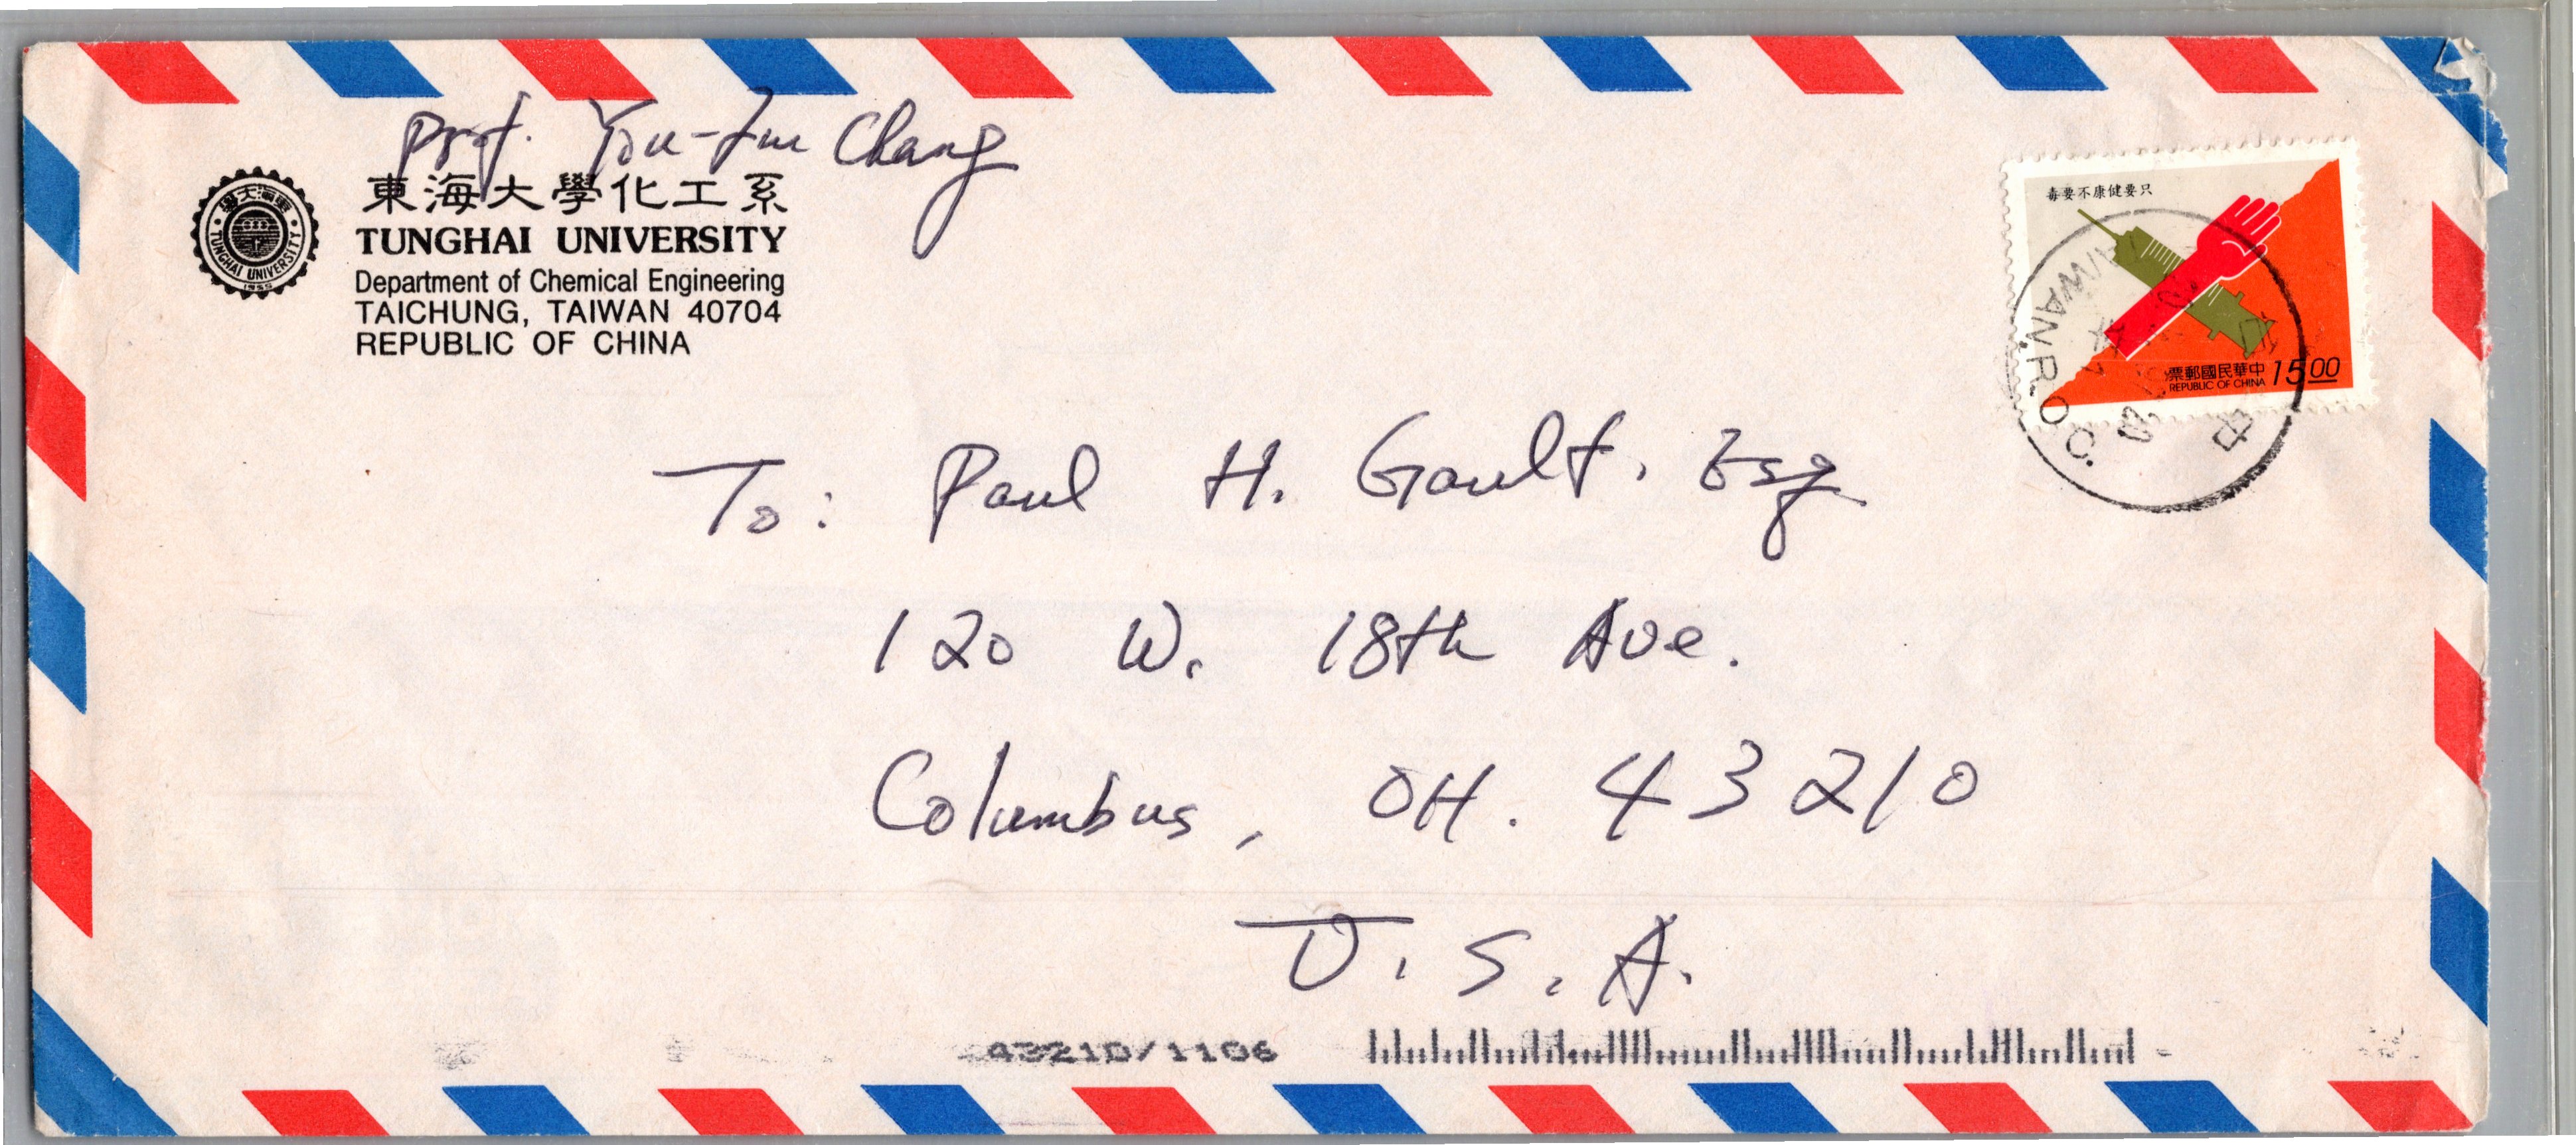 Prof. You-Im Chang
東海大學化工系
TUNGHAI UNIVERSITY
Department of Chemical Engineering
TAICHUNG, TAIWAN 40704
REPUBLIC OF CHINA
學大海東
TUNGHAI UNIVERSITY
1955
毒要不康健要只
票郵國民華中
REPUBLIC OF CHINA
15.00
TAIWAN, R.O.C.
To: Paul H. Gault, Esq
120 W. 18th Ave.
Columbus, OH. 43210
U.S.A.
43210/1106